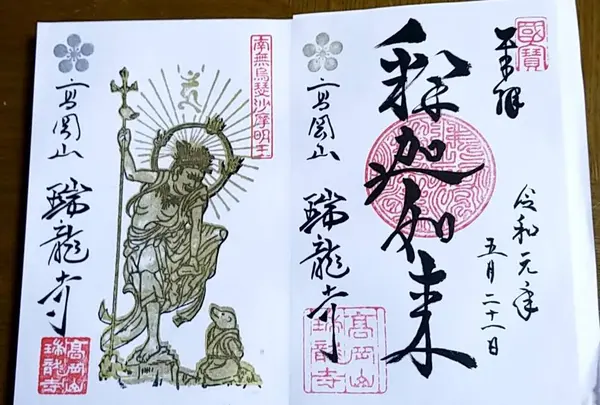 國寶
奉拝
釈迦如来
令和元年
五月二十一日
高岡山
瑞龍寺
高岡山
瑞龍寺
南無烏瑟沙摩明王
高岡山
瑞龍寺
高岡山
瑞龍寺